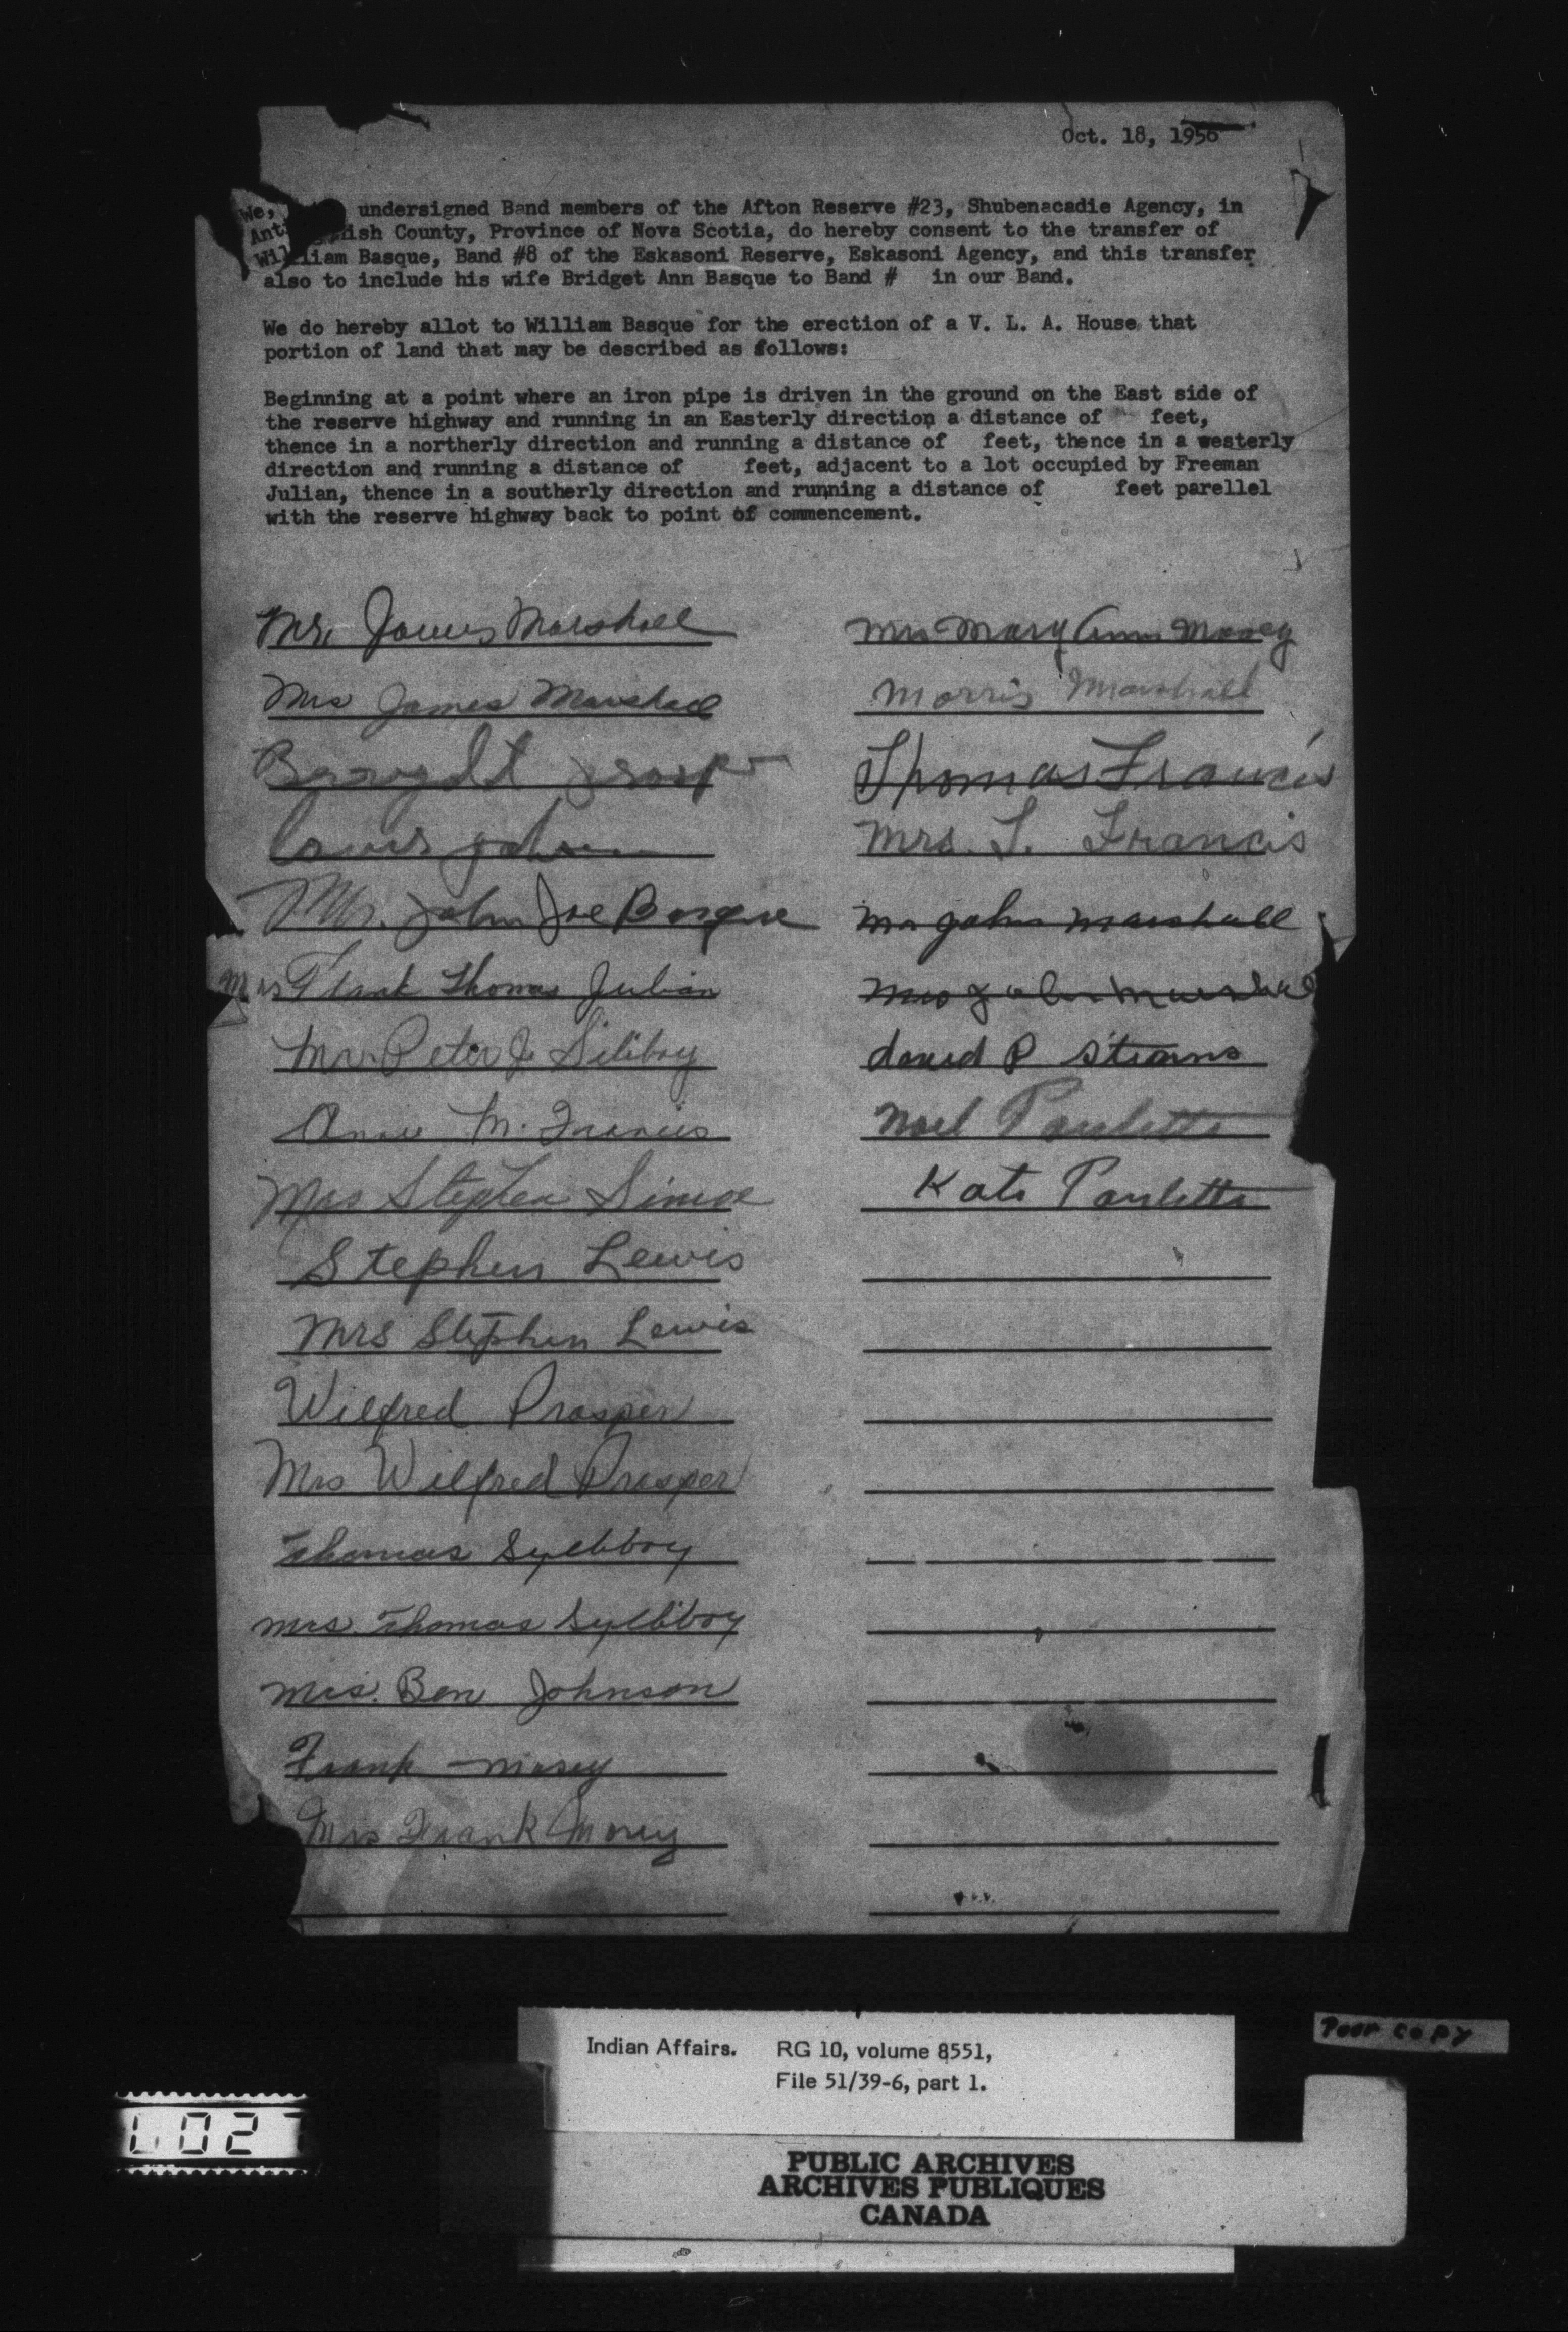 Oct. 18, 1956
We, undersigned Band members of the Afton Reserve #23, Shubenacadie Agency, in
Ant ish County, Province of Nova Scotia, do hereby consent to the transfer of
William Basque, Band #8 of the Eskasoni Reserve, Eskasoni Agency, and this transfer
also to include his wife Bridget Ann Basque to Band # in our Band.
We do hereby allot to William Basque for the erection of a V. L. A. House that
portion of land that may be described as follows:
Beginning at a point where an iron pipe is driven in the ground on the East side of
the reserve highway and running in an Easterly direction a distance of feet,
thence in a northerly direction and running a distance of feet, thence in a westerly
direction and running a distance of feet, adjacent to a lot occupied by Freeman
Julian, thence in a southerly direction and running a distance of feet parellel
with the reserve highway back to point of commencement.
Mr. James Marshall
Mrs James Marshall
Louis John
Mr. John Joe Basque
Mrs Frank Thomas Julian
Mr. Peter J. Siliboy
Annie M. Francis
Mrs Stephen
Stephen Lewis
Mrs Stephen Lewis
Wilfred Prosper
Mrs Wilfred Prosper
Thomas Sylliboy
Mrs. Thomas Sylliboy
Mrs. Ben Johnson
Frank
Mrs Frank
Mrs Mary Ann
Morris Marshall
Thomas Francis
Mrs. T. Francis
Mr John Marshall
Mrs John Marshall
P
Noel Paulette
Kate Paulette
Indian Affairs. RG 10, volume 8551,
File 51/39-6, part 1.
Poor copy
PUBLIC ARCHIVES
ARCHIVES PUBLIQUES
CANADA